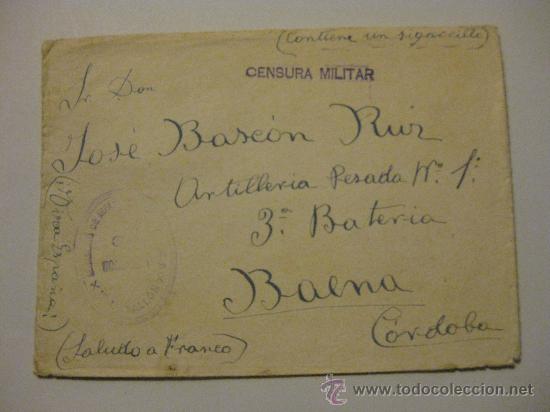 (Contiene un sigarrillo)
CENSURA MILITAR
Sr. Don
José Bascón Ruiz
Artilleria Pesada Nº 1º
3ª Bateria
Baena
Córdoba
(¡Viva España!)
(Saludo a Franco)
© www.todocoleccion.net